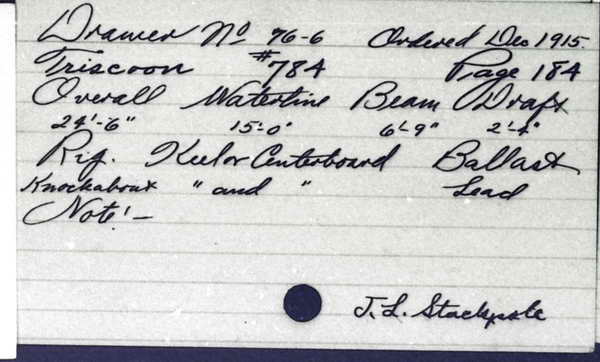 Drawer No 76-6 Ordered Dec 1915.
Triscoon #784 Page 184
Overall Waterline Beam Draft
24'-6" 15'-0" 6'-9" 2'-4"
Rig. Keel or Centerboard Ballast
Knockabout " and " Lead
Note:-
J. L. Stackpole